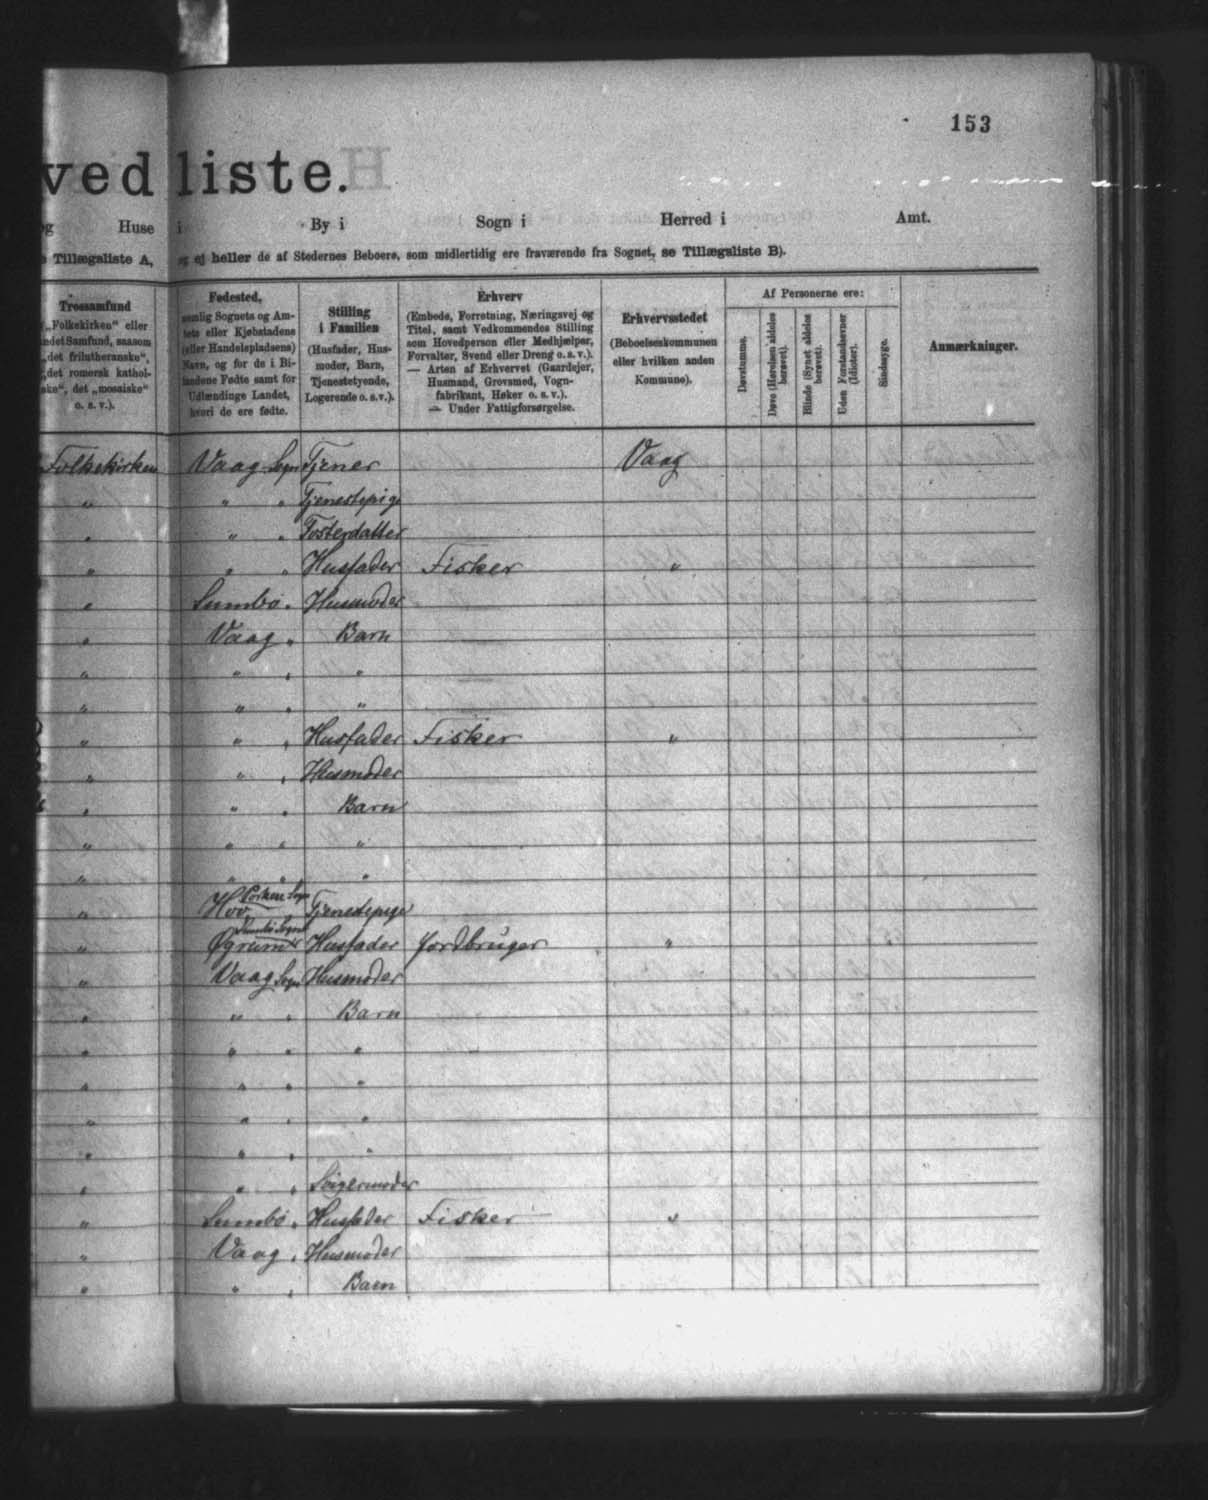 153
ved liste.
og Huse i By i Sogn i Herred i Amt.
Tillægsliste A, og ej heller de af Stedernes Beboere, som midlertidig ere fraværende fra Sognet, se Tillægsliste B).
Trossamfund
(„Folkekirken“ eller
andet Samfund, saasom
„det frilutheranske“,
„det romersk kathol-
ske“, det „mosaiske“
o. s. v.).
Fødested,
nemlig Sognets og Am-
tets eller Kjøbstadens
(eller Handelspladsens)
Navn, og for de i Bi-
landene Fødte samt for
Udlændinge Landet,
hvori de ere fødte.
Stilling
i Familien
(Husfader, Hus-
moder, Barn,
Tjenestetyende,
Logerende o. s. v.).
Erhverv
(Embede, Forretning, Næringsvej og
Titel, samt Vedkommendes Stilling
som Hovedperson eller Medhjælper,
Forvalter, Svend eller Dreng o. s. v.).
— Arten af Erhvervet (Gaardejer,
Husmand, Grovsmed, Vogn-
fabrikant, Høker o. s. v.).
— Under Fattigforsørgelse.
Erhvervsstedet
(Beboelseskommunen
eller hvilken anden
Kommune).
Af Personerne ere:
Døvstumme.
Døve (Hørelsen aldeles
berøvet).
Blinde (Synet aldeles
berøvet).
Uden Forstandsevner
(Idioter).
Sindssyge.
Anmærkninger.
Folkekirken Vaag Sogn Tjener Vaag
„ „ „ Tjenestepige
„ „ „ Fosterdatter
„ „ „ Husfader Fisker „
„ Sumbø „ Husmoder
„ Vaag „ Barn
„ „ „ „
„ „ „ „
„ „ „ Husfader Fisker „
„ „ „ Husmoder
„ „ „ Barn
„ „ „ „
„ „ „ „
„ Hov Porkeri Sogn Tjenestepige
„ Øgrum Sumbø Sogn Husfader Jordbruger „
„ Vaag Sogn Husmoder
„ „ „ Barn
„ „ „ „
„ „ „ „
„ „ „ „
„ „ „ „
„ „ „ Svigermoder
„ Sumbø „ Husfader Fisker „
„ Vaag „ Husmoder
„ „ „ Barn